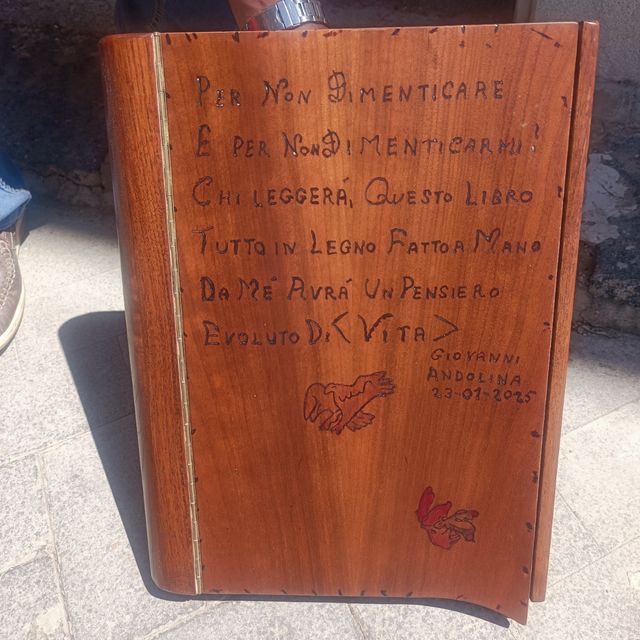 PER NON DIMENTICARE
E PER NON DIMENTICARMI!
CHI LEGGERÁ, QUESTO LIBRO
TUTTO IN LEGNO FATTO A MANO
DA MÉ AVRÁ UN PENSIERO
EVOLUTO DI <VITA>
GIOVANNI
ANDOLINA
23-01-2025